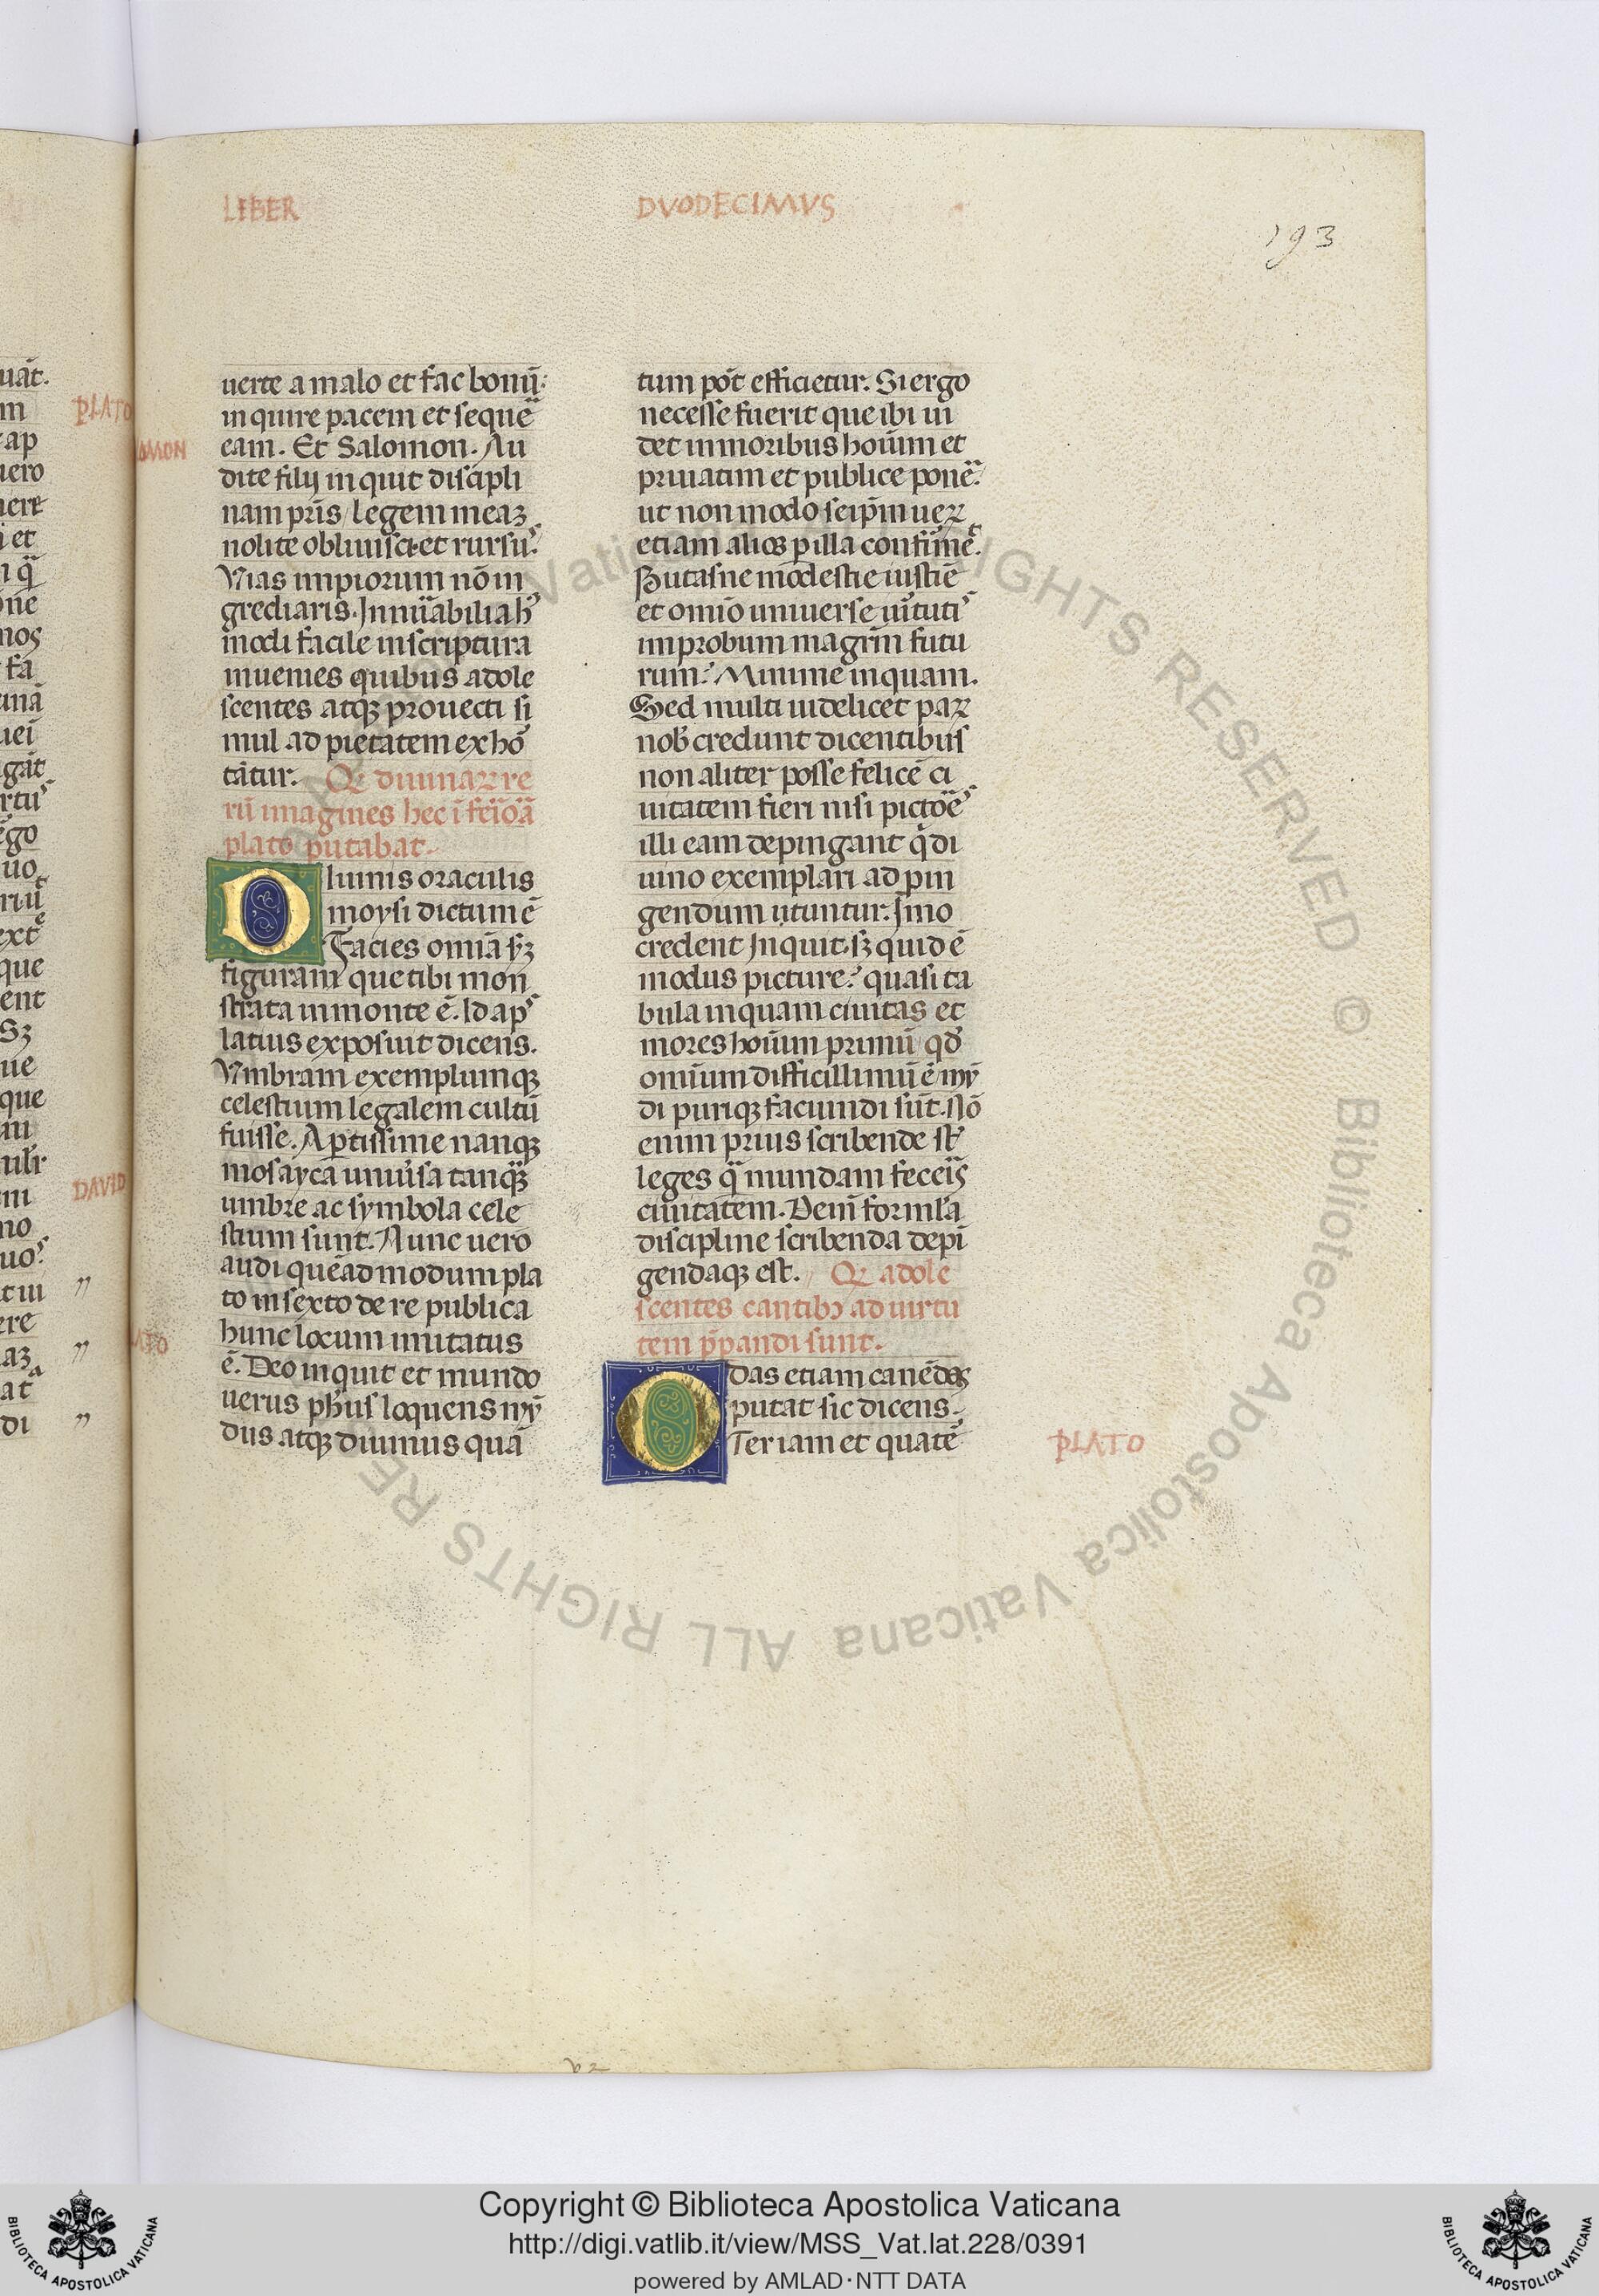 LIBER
DVODECIMVS
193
uerte a malo et fac bonū:
inquire pacem et sequē
eam. Et Salomon. Au
dite filij inquit discipli
nam pr̄is legem meaꝫ
nolite obliuisci et rursu᷒.
Vias impiorum nō in
grediaris. Innūabilia h᷒
modi facile in scriptura
inuenies quibus adole
scentes atqꝫ prouecti si
mul ad pietatem exhō
tātur. Qꝫ diuinaꝝ re
rū imagines hec ī
plato putabat.
Diuinis oraculis
moysi dictum ē
Facies omīa
figuram que tibi mon
strata in monte ē. Id ap᷒
latius exposuit dicens.
Vmbram exemplumqꝫ
celestium legalem cultū
fuisse. Aptissime nanqꝫ
mosayca uniūsa tanq̄ꝫ
umbre ac symbola cele
stium sunt. Nunc uero
audi quēadmodum pla
to in sexto de re publica
hunc locum imitatus
ē. Deo inquit et mundo
uerus ph̄us loquens mū
dus atqꝫ diuinus quā
tum pōt efficietur. Si ergo
necesse fuerit que ibi ui
det in moribus hoīum et
priuatim et publice ponē
ut non modo seip̄m ueꝝ
etiam alios ꝑ illa confirmē.
Putasne modestie iustīē
et omīo uniuerse ūtuti᷒
improbum magrm̄ futu
rum? Minime inquam.
Sed multi uidelicet paꝝ
nob̄ credunt dicentibus
non aliter posse felicē ci
uitatem fieri nisi pictoē᷒
illi eam depingant q̄ di
uino exemplari ad pin
gendum utuntur. Imo
credent Inquit. sꝫ quid ē
modus picture? quasi ta
bula inquam ciuitas et
mores hoīum primū qđ
omīum difficillimū ē mū
di puriqꝫ faciundi sūt. Nō
enim prius scribende st̄
leges q̄ mundam feceīs
ciuitatem. Deiñ formla
discipline scribenda depī
gendaqꝫ est. Qꝫ adole
scentes cantibꝫ ad uirtu
tem p̄pandi sunt.
Odas etiam canēdas
putat sic dicens.
Ter iam et quatē᷒
PLATO
PLATO
DAVID
Copyright © Biblioteca Apostolica Vaticana
http://digi.vatlib.it/view/MSS_Vat.lat.228/0391
powered by AMLAD·NTT DATA
BIBLIOTECA APOSTOLICA VATICANA
BIBLIOTECA APOSTOLICA VATICANA
© Biblioteca Apostolica Vaticana ALL RIGHTS RESERVED